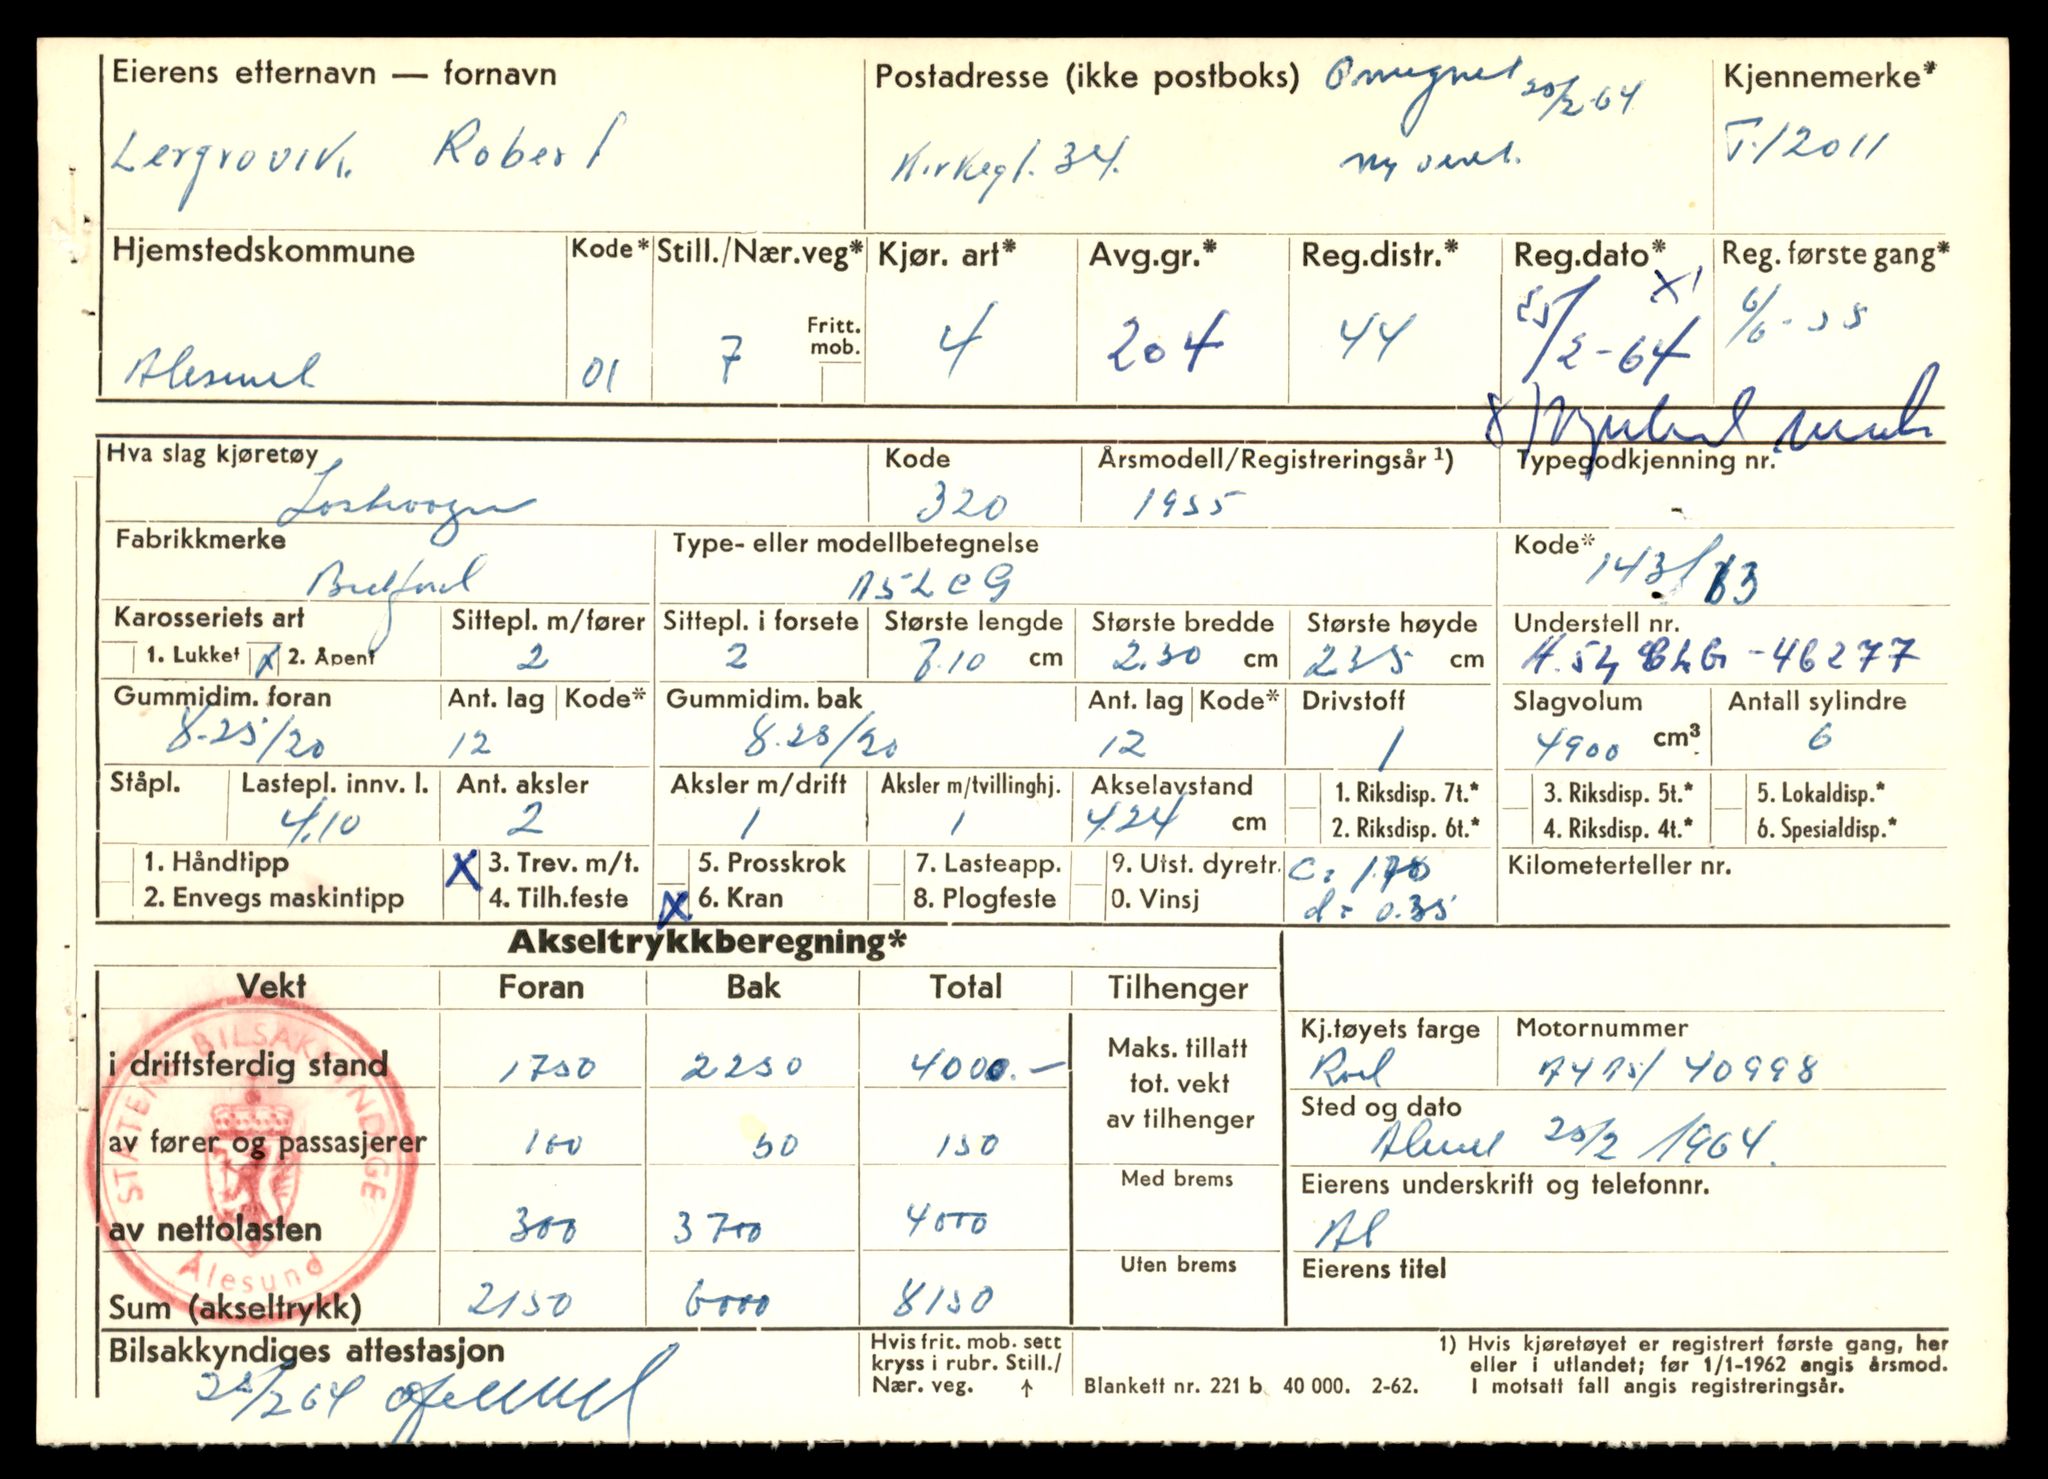 Eierens etternavn — fornavn
Lergrovik. Robert
Postadresse (ikke postboks) Omregnet 20/2-64
Kirkegt. 34. Ny vekt.
Kjennemerke*
T-12011
Hjemstedskommune
Ålesund
Kode*
01
Still./Nær.veg*
7
Fritt.
mob.
Kjør. art*
4
Avg.gr.*
204
Reg.distr.*
44
Reg.dato*
25/2-64
Reg. første gang*
6/6-55
Hva slag kjøretøy
Lastevogn
Kode
320
Årsmodell/Registreringsår 1)
1955
Typegodkjenning nr.
Fabrikkmerke
Bedford
Type- eller modellbetegnelse
A5LCG
Kode*
143/
Karosseriets art
1. Lukket x 2. Åpent
Sittepl. m/fører
2
Sittepl. i forsete
2
Største lengde
7.10 cm
Største bredde
2.30 cm
Største høyde
235 cm
Understell nr.
-46277
Gummidim. foran
8.25/20
Ant. lag
12
Kode*
Gummidim. bak
8.25/20
Ant. lag
12
Kode*
Drivstoff
1
Slagvolum
4900 cm³
Antall sylindre
6
Ståpl.
Lastepl. innv. l.
4.10
Ant. aksler
2
Aksler m/drift
1
Aksler m/tvillinghj.
1
Akselavstand
424 cm
1. Riksdisp. 7t.*
2. Riksdisp. 6t.*
3. Riksdisp. 5t.*
4. Riksdisp. 4t.*
5. Lokaldisp.*
6. Spesialdisp.*
1. Håndtipp
2. Envegs maskintipp
X 3. Trev. m/t.
4. Tilh.feste
5. Prosskrok
X 6. Kran
7. Lasteapp.
8. Plogfeste
9. Utst. dyretr.
0. Vinsj
c = 1.78
d = 0.35
Kilometerteller nr.
Akseltrykkberegning*
Vekt Foran Bak Total Tilhenger
i driftsferdig stand 1750 2250 4000.—
av fører og passasjerer 100 50 150
av nettolasten 300 3700 4000
Sum (akseltrykk) 2150 6000 8150
Maks. tillatt
tot. vekt
av tilhenger
Med brems
Uten brems
Kj.tøyets farge
Rød
Motornummer
/40998
Sted og dato
Ålesund 25/2 1964.
Eierens underskrift og telefonnr.
Eierens titel
STATENS BILSAKKYNDIGE
Ålesund
Bilsakkyndiges attestasjon
25/2 64
Hvis frit. mob. sett
kryss i rubr. Still./
Nær. veg. ↑
Blankett nr. 221 b 40 000. 2-62.
1) Hvis kjøretøyet er registrert første gang, her
eller i utlandet; før 1/1-1962 angis årsmod.
I motsatt fall angis registreringsår.